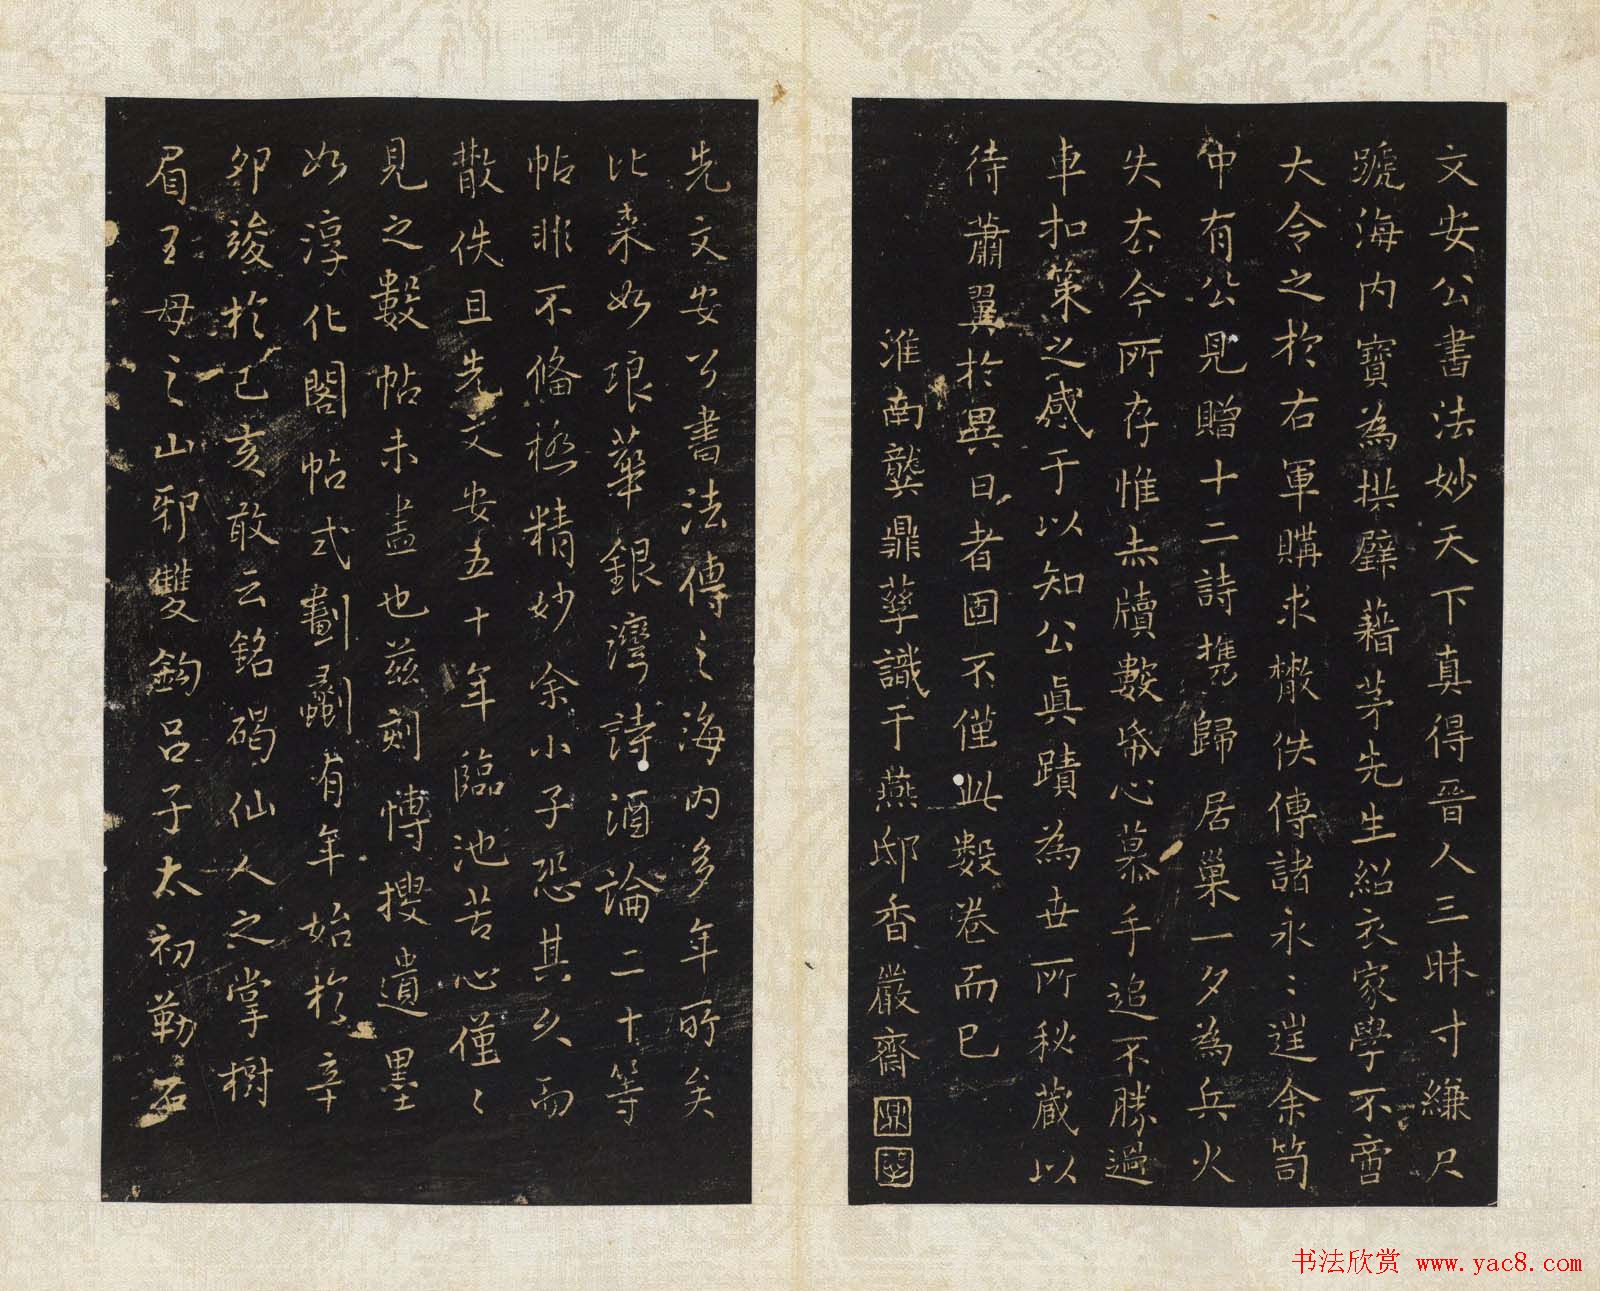 文安公書法妙天下真得晉人三昧寸縑尺
蹏海内寶為拱璧藉茅先生紹衣家學不啻
大令之於右軍購求散佚傳諸永〻逕余笥
中有公見贈十二詩攜歸居巢一夕為兵火
失去今所存惟赤牘數帋心慕手追不勝過
車扣策之感于以知公真蹟為世所秘藏以
待蕭翼於異日者固不僅此數卷而已
淮南龔鼎孳識于燕邸香嚴齋
先文安公書法傳之海内多年所矣
比來如琅華館銀灣詩酒論二十等
帖非不備極精妙余小子恐其久而
散佚且先文安五十年臨池苦心僅〻
見之數帖未盡也茲刻博搜遺墨
如淳化閣帖式劃劂有年始於辛
卯竣於己亥敢云銘碣仙人之掌樹
眉王母之山邪雙鉤呂子太初勒石
书法欣赏 www.yac8.com